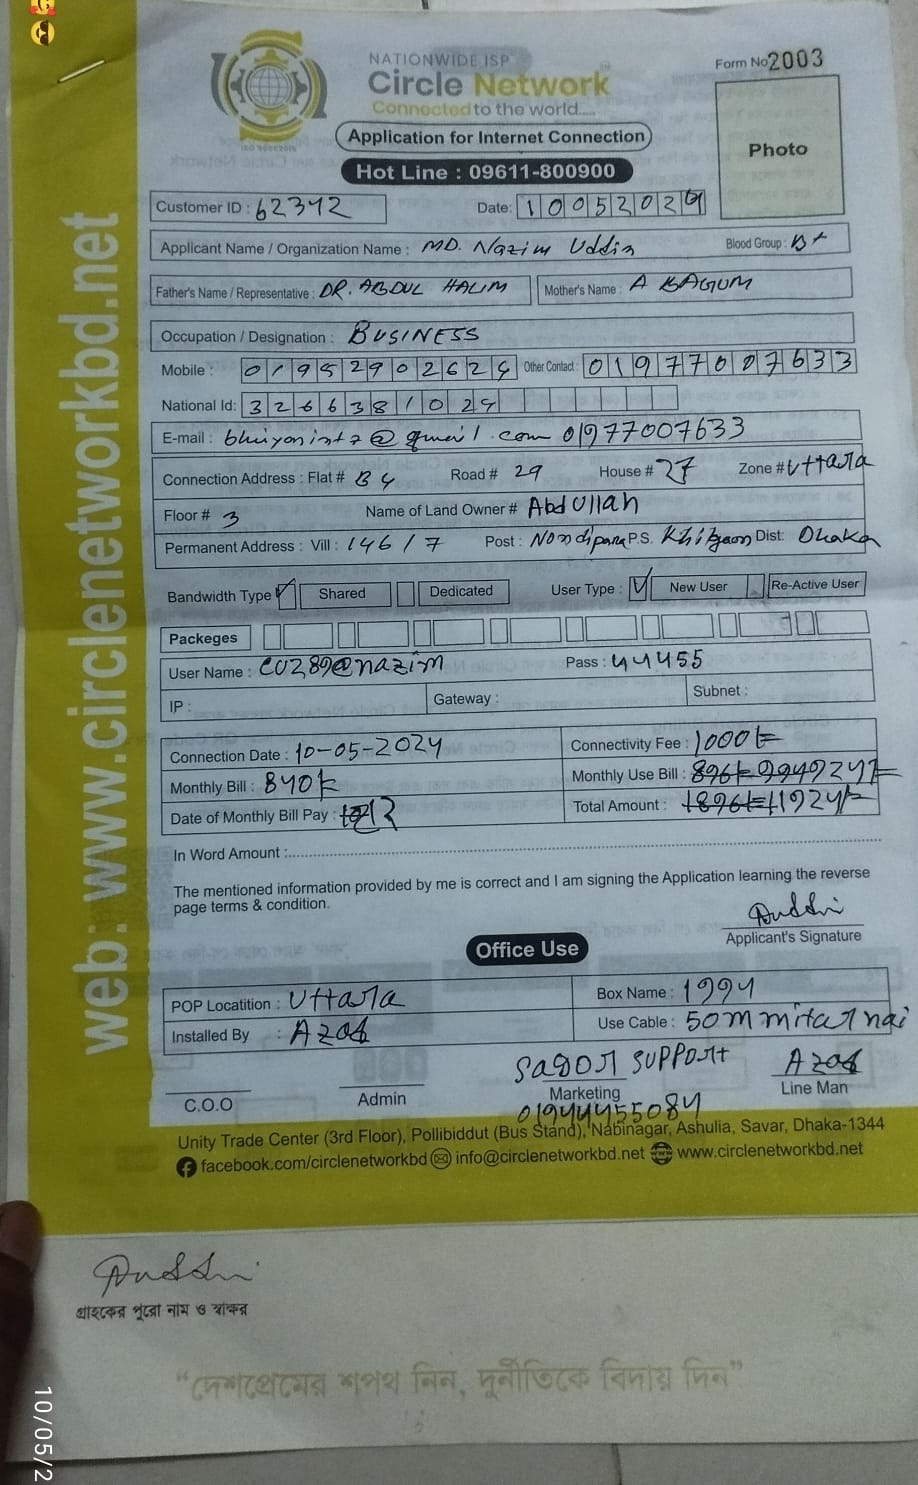 NATIONWIDE ISP
Circle Network
Connected to the world.....
Form No 2003
Application for Internet Connection
Photo
Hot Line : 09611-800900
Customer ID : 62342
Date: 10052024
Applicant Name / Organization Name : MD. Nazim Uddin
Blood Group : B+
Father's Name / Representative : DR. ABDUL HALIM
Mother's Name : A BAGUM
Occupation / Designation : BUSINESS
Mobile : 01952902624
Other Contact : 01977007633
National Id: 3266381024
E-mail : @gmail.com 01977007633
Connection Address : Flat # B4 Road # 29 House # 27 Zone # Uttara
Floor # 3 Name of Land Owner # Abdullah
Permanent Address : Vill : 146/7 Post : Nondipara P.S. Khilgaon Dist: Dhaka
Bandwidth Type Shared Dedicated User Type : New User Re-Active User
Packeges
User Name : @nazim Pass : 44455
IP : Gateway : Subnet :
Connection Date : 10-05-2024
Connectivity Fee : 1000
Monthly Bill : 840
Monthly Use Bill :
Date of Monthly Bill Pay :
Total Amount :
In Word Amount :
The mentioned information provided by me is correct and I am signing the Application learning the reverse
page terms & condition.
Applicant's Signature
Office Use
POP Locatition : Uttara
Box Name : 1994
Installed By : Azad
Use Cable : 50m mitar nai
C.O.O
Admin
Sagor support
Marketing
01944455084
Azad
Line Man
Unity Trade Center (3rd Floor), Pollibiddut (Bus Stand), Nabinagar, Ashulia, Savar, Dhaka-1344
facebook.com/circlenetworkbd info@circlenetworkbd.net www.circlenetworkbd.net
web: www.circlenetworkbd.net
গ্রাহকের পুরো নাম ও স্বাক্ষর
“দেশপ্রেমের শপথ নিন, দুর্নীতিকে বিদায় দিন”
10/05/2